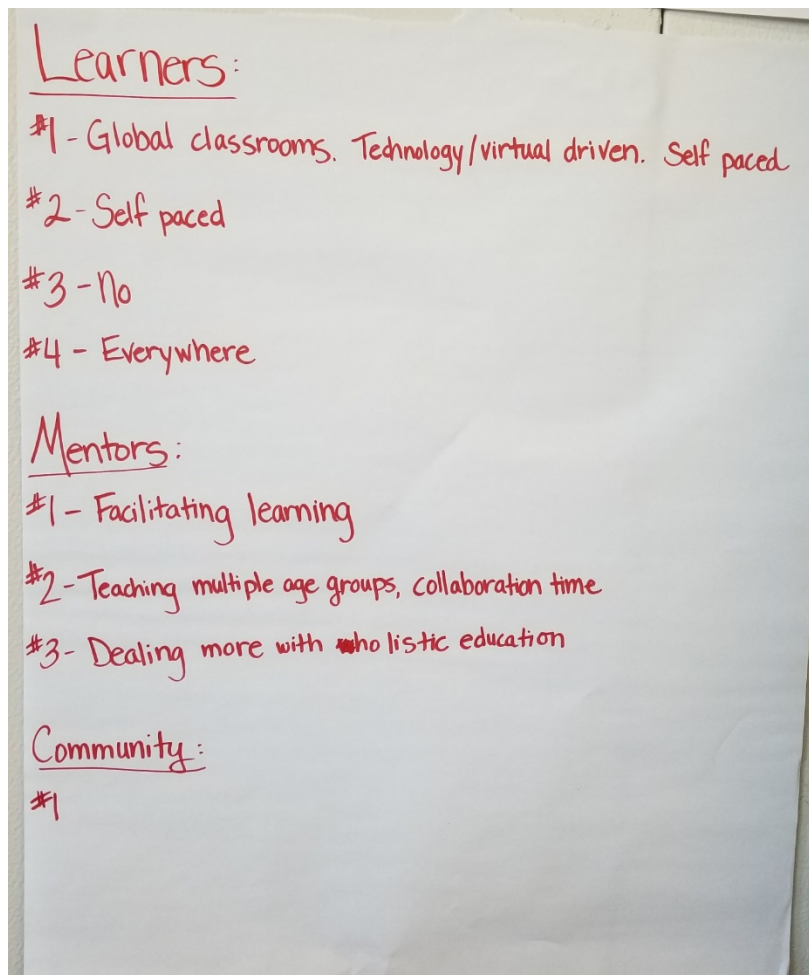 Learners:
#1 - Global classrooms. Technology/virtual driven. Self paced
#2 - Self paced
#3 - No
#4 - Everywhere
Mentors:
#1 - Facilitating learning
#2 - Teaching multiple age groups, collaboration time
#3 - Dealing more with holistic education
Community:
#1